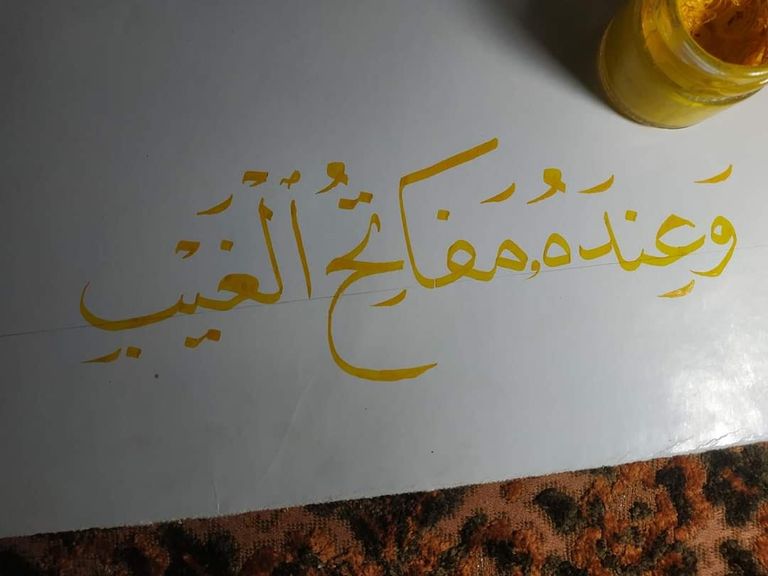 وَعِندَهُۥ مَفَاتِحُ ٱلْغَيْبِ